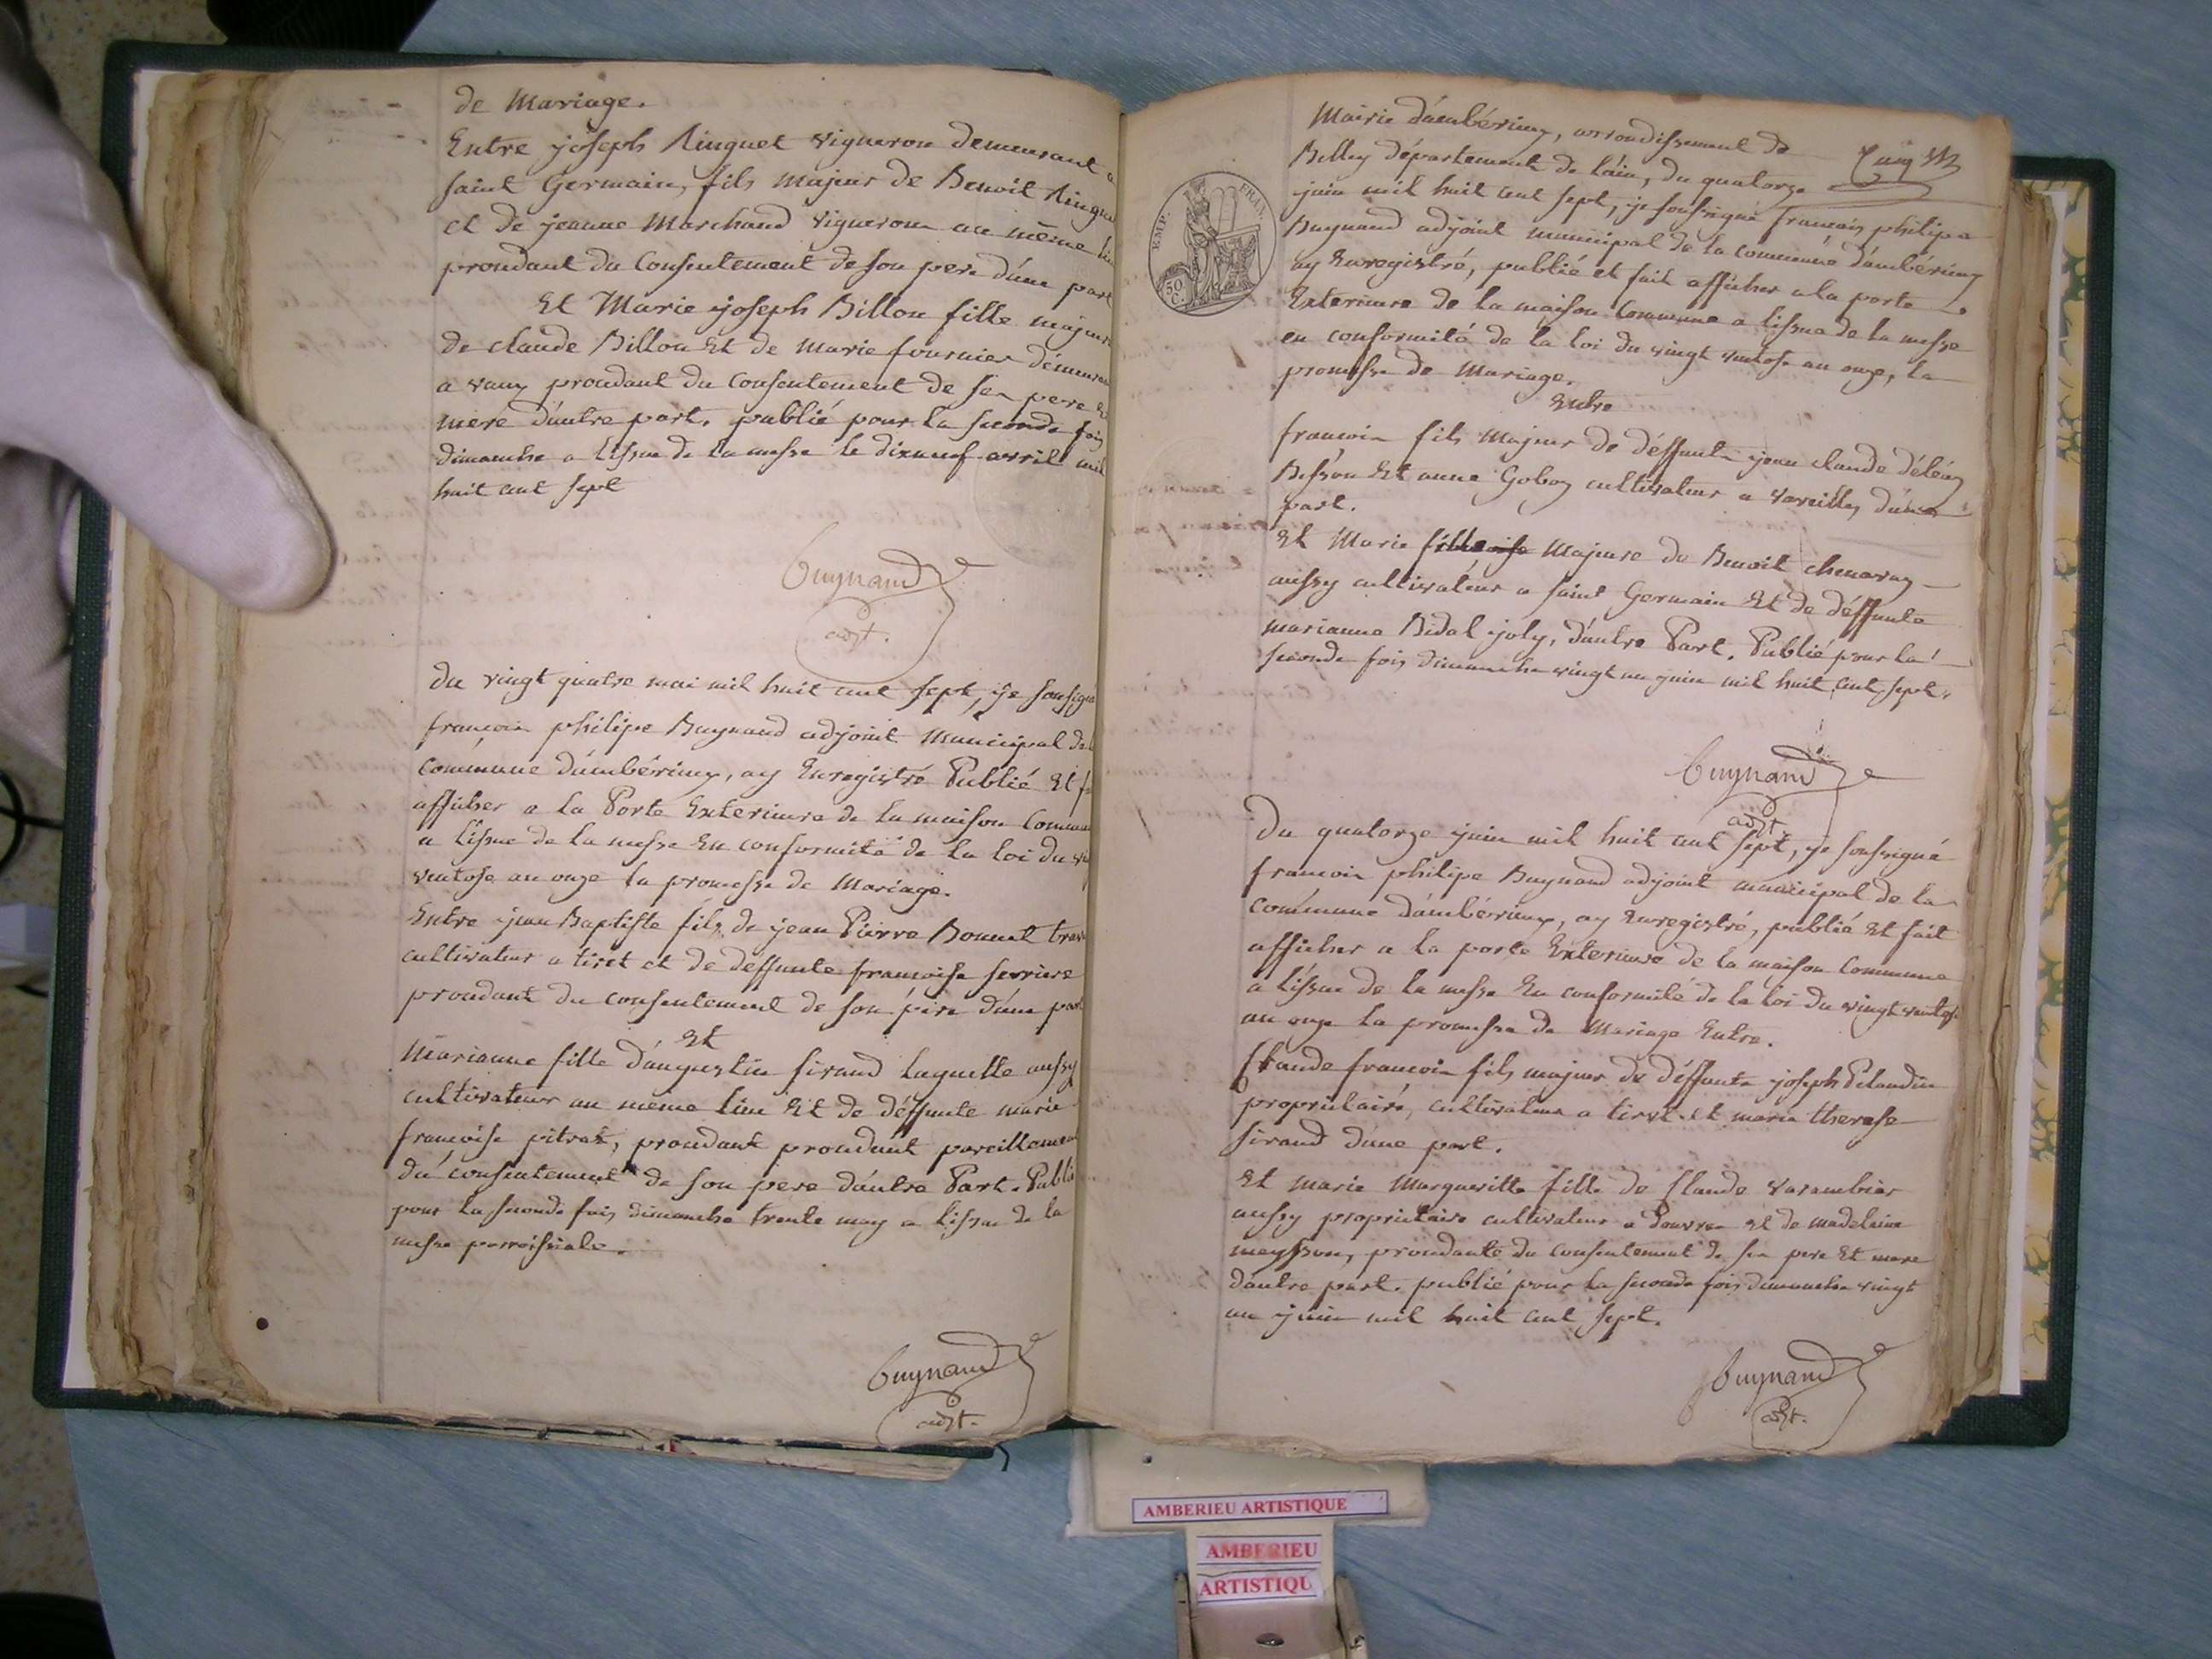 de Mariage.
Entre joseph Ringuet vigneron demeurant a
saint Germain, fils majeur de Benoit Ringuet
et de jeanne Marchand vigneron au même
prondant du Consentement de son pere d'une part
Et Marie joseph Billon fille majeure
de claude Billon Et de Marie fournier démeurant
a vaux prondant du Consentement de ses pere &
mere d'autre part. publié pour la seconde fois
dimanche a l'issue de la messe le dixneuf avril mil
huit cent sept
Buynand
adjt.
du vingt quatre mai mil huit cent sept, je sousigné
françois philipe Buynand adjoint Municipal de
Commune d'ambérieux, ay Enregistré Publié Et
afficher a la Porte Exterieure de la maison Commune
a l'issue de la messe En conformité de la loi du
ventose an onze la promesse de Mariage.
Entre jean Baptiste fils de jean Pierre Bonnet
cultivateur a tiret et de deffunte francoise serriere
prondant du consentement de son pere d'une part
Et
Marianne fille d'augustin sirand laguette aussy
cultivateur au même lieu Et de déffunte marie
francoise pitrat, prondant prondant pareillement
du consentement de son pere d'autre Part. Publié
pour la seconde fois dimanche trente may a l'issue de la
messe parroissiale.
Buynand
adjt.
Mairie d'ambérieux, arrondissement de
Belley département de l'ain, du quatorze
juin mil huit cent sept, je soussigné francois philipe
Buynand adjoint municipal de la commune d'ambérieux
ay Enregistré, publié et fait afficher a la porte
Exterieure de la maison Commune a l'issue de la messe
en conformité de la loi du vingt ventose an onze, la
promesse de Mariage.
Entre
francois fils Majeur de déffunts jean claude
Besson Et anne Goboz cultivateur a vareilles d'une
part.
Et Marie fille Majeure de Benoit chenavaz
aussy cultivateur a saint Germain Et de déffunte
marianne Bidal joly, d'autre Part. Publié pour la
seconde fois dimanche vingt un juin mil huit cent sept.
Buynand
adjt.
Du quatorze juin mil huit cent sept, je soussigné
francois philipe Buynand adjoint municipal de la
commune d'ambérieux, ay Enregistré, publié Et fait
afficher a la porte Exterieure de la maison Commune
a l'issue de la messe En conformité de la loi du vingt ventose
an onze la promesse de Mariage Entre.
Claude francois fils majeur de déffunts joseph Pelaudin
propriétaire, cultivateur a tiret et marie therese
sirand d'une part.
Et marie Margueritte fille de Claude varambier
aussy propriétaire cultivateur a Douvres Et de madelaine
meysson, prondante du Consentement de ses pere Et mere
d'autre part. publié pour la seconde fois dimanche vingt
un juin mil huit cent sept.
Buynand
adjt.
EMP. FRAN.
50 C.
AMBERIEU ARTISTIQUE
AMBERIEU
ARTISTIQU